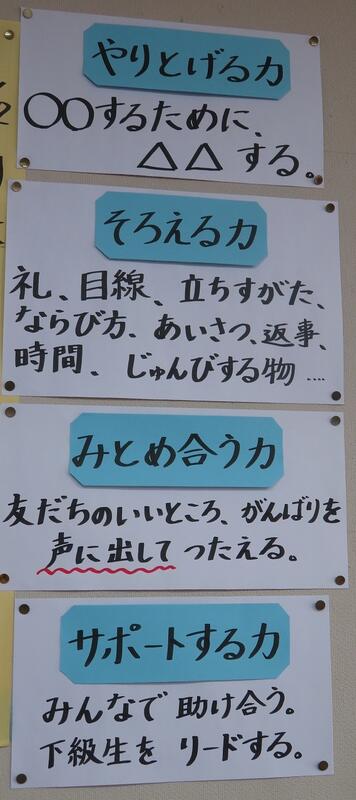 やりとげる力
〇〇するために、
△△する。
そろえる力
礼、目線、立ちすがた、
ならび方、あいさつ、返事、
時間、じゅんびする物…
みとめ合う力
友だちのいいところ、がんばりを
声に出してつたえる。
サポートする力
みんなで助け合う。
下級生をリードする。